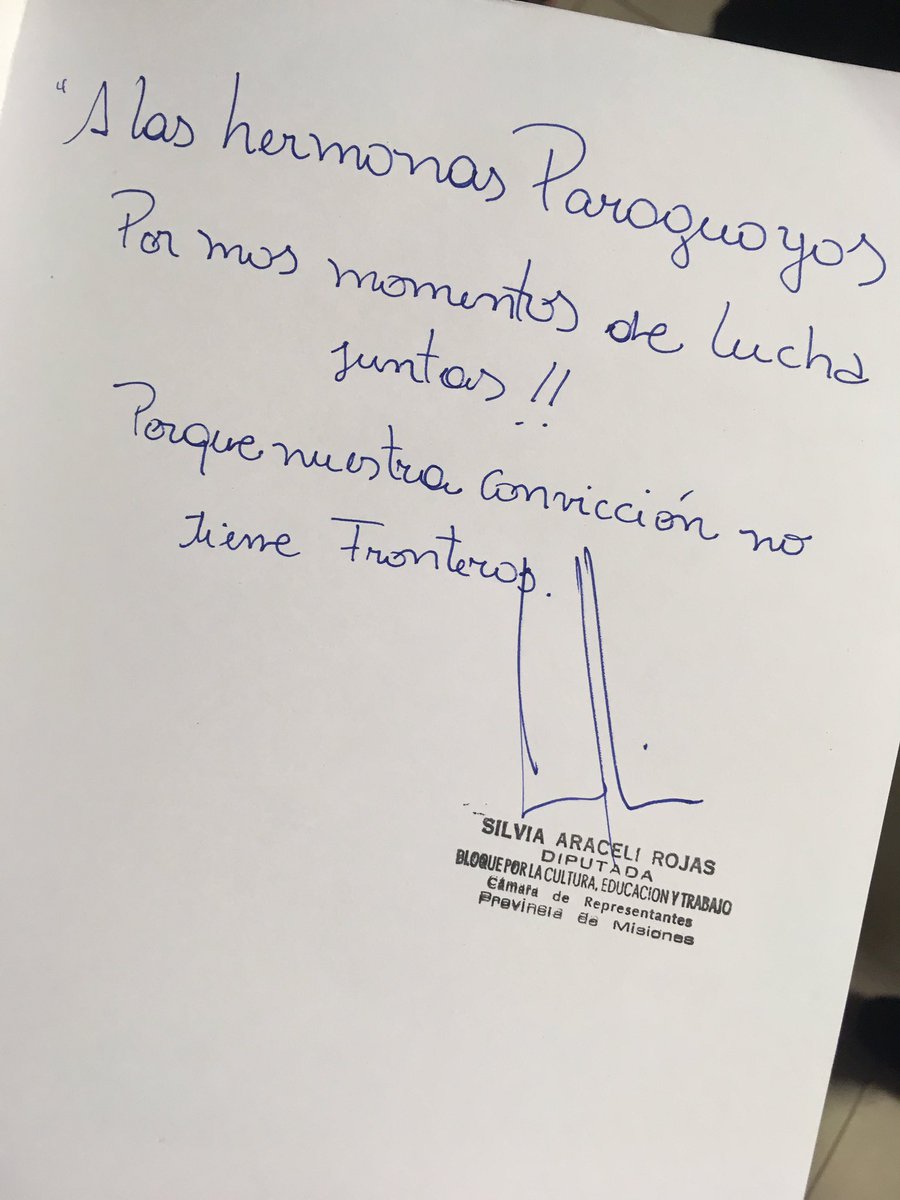 "A las hermanas Paraguayas
Por mas momentos de lucha
juntas!!
Porque nuestra convicción no
tiene Fronteras.
SILVIA ARACELI ROJAS
DIPUTADA
BLOQUE POR LA CULTURA, EDUCACION Y TRABAJO
Cámara de Representantes
Provincia de Misiones